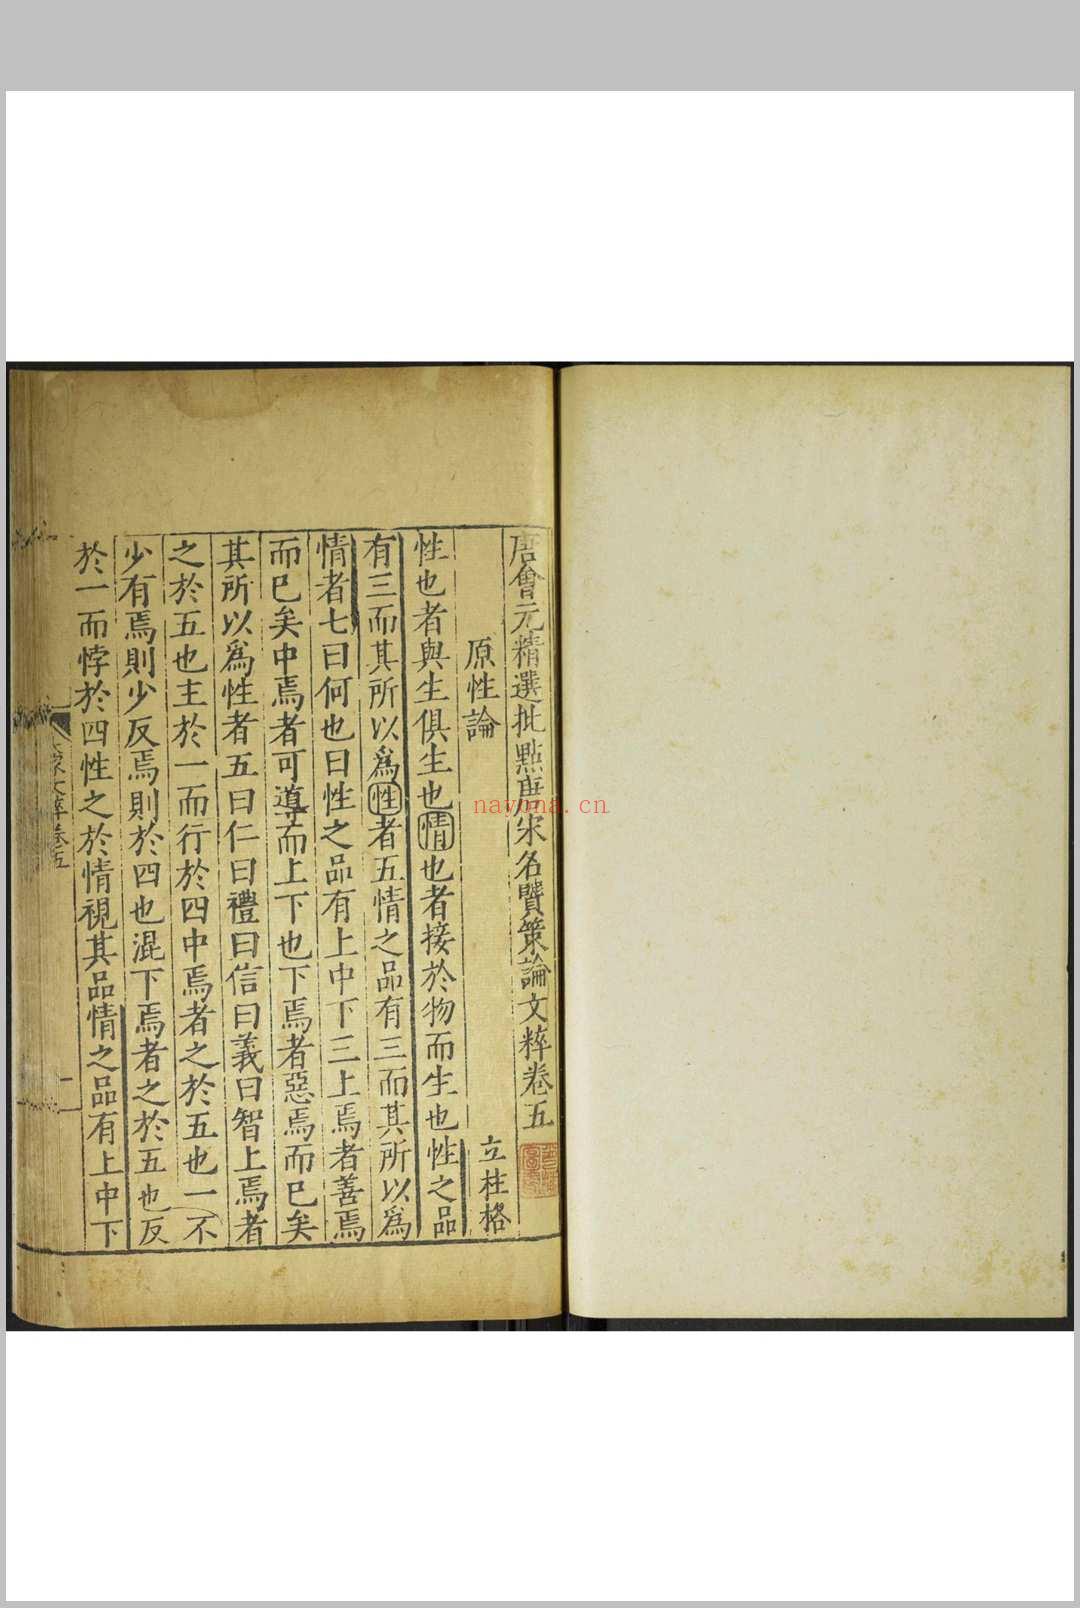 唐會元精選批點唐宋名賢策論文粹卷五
原性論 立柱格
性也者與生俱生也情也者接於物而生也性之品
有三而其所以爲性者五情之品有三而其所以爲
情者七曰何也曰性之品有上中下三上焉者善焉
而已矣中焉者可導而上下也下焉者惡焉而已矣
其所以爲性者五曰仁曰禮曰信曰義曰智上焉者
之於五也主於一而行於四中焉者之於五也一不
少有焉則少反焉則於四也混下焉者之於五也反
於一而悖於四性之於情視其品情之品有上中下
文粹卷五
nayona.cn